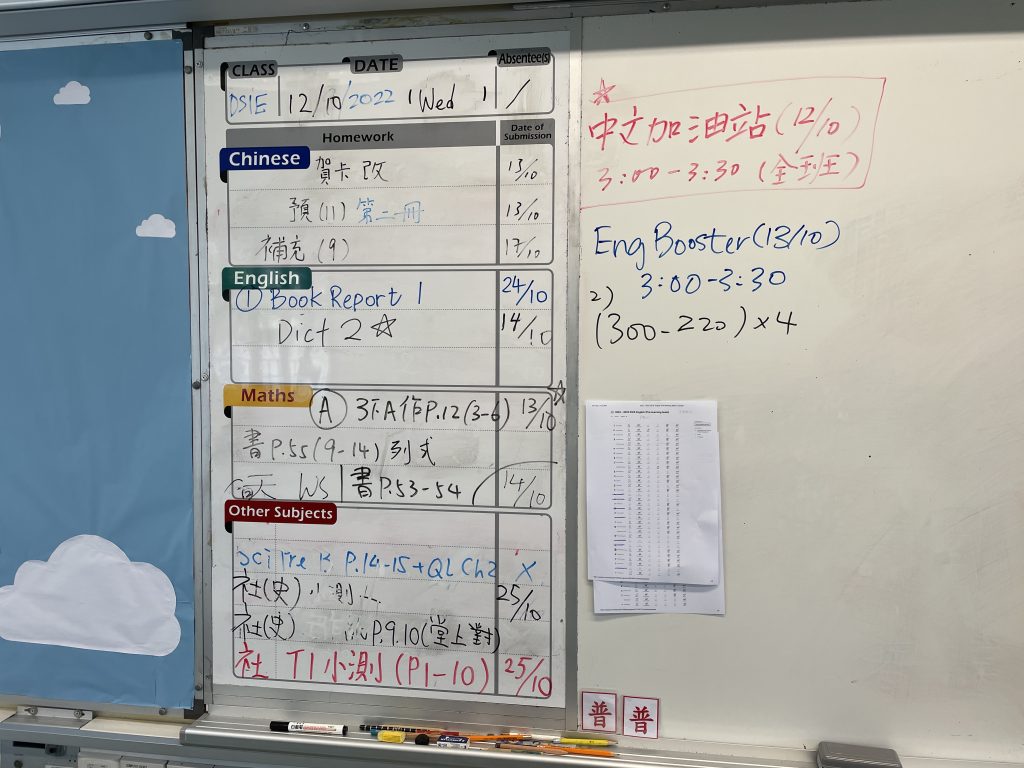 CLASS DATE Absentee(s)
12/10/2022 Wed /
Homework Date of Submission
Chinese
賀卡改 13/10
預(11) 第二冊 13/10
補充(9) 17/10
English
① Book Report 1 24/10
Dict 2 ☆ 14/10
Maths
Ⓐ 3下A作P.12(3-6) 13/10 ☆
書P.55(9-14)列式
WS 書P.53-54 14/10
Other Subjects
Sci Pre P.14-15+QL Ch2 X
社(史)小測 25/10
社(史) P.9.10(堂上對)
社 T1小測(P1-10) 25/10
☆
中文加油站(12/10)
3:00-3:30(全班)
Eng Booster(13/10)
3:00-3:30
2)
(300-220)×4
普 普